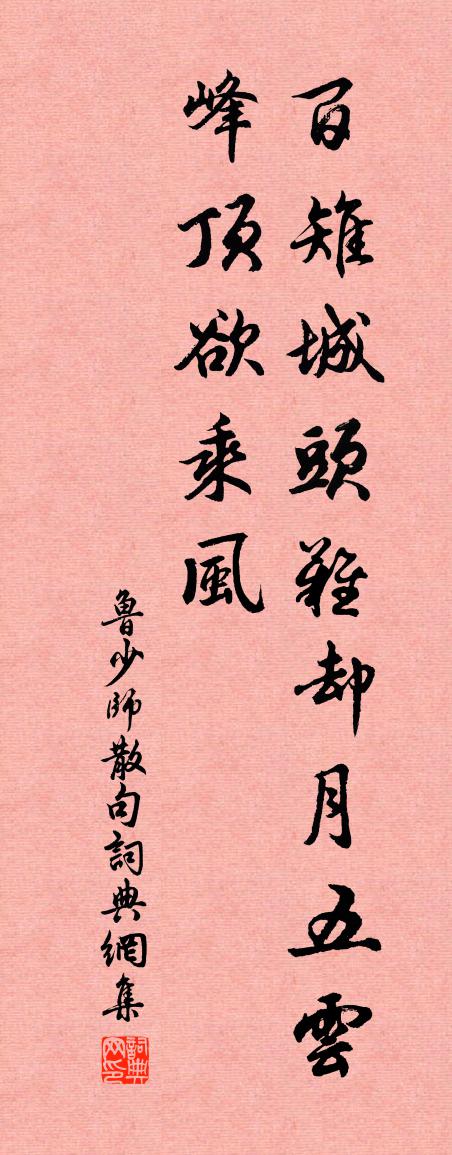 百雉城頭難却月五雲
峰頂欲乘風
魯少師散句詞典網集
詞典网印